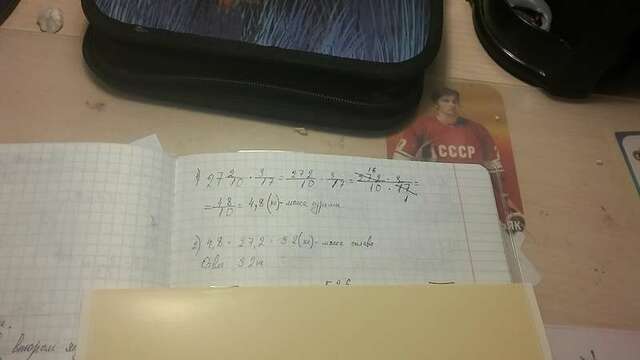 СССР
1) 27 2/10 · 3/17 = 272/10 · 3/17 = 272 · 3 / 10 · 17 =
16
1
= 48/10 = 4,8 (кг) - масса
2) 4,8 + 27,2 = 32 (кг) - масса сплава
Ответ 32 кг
втором